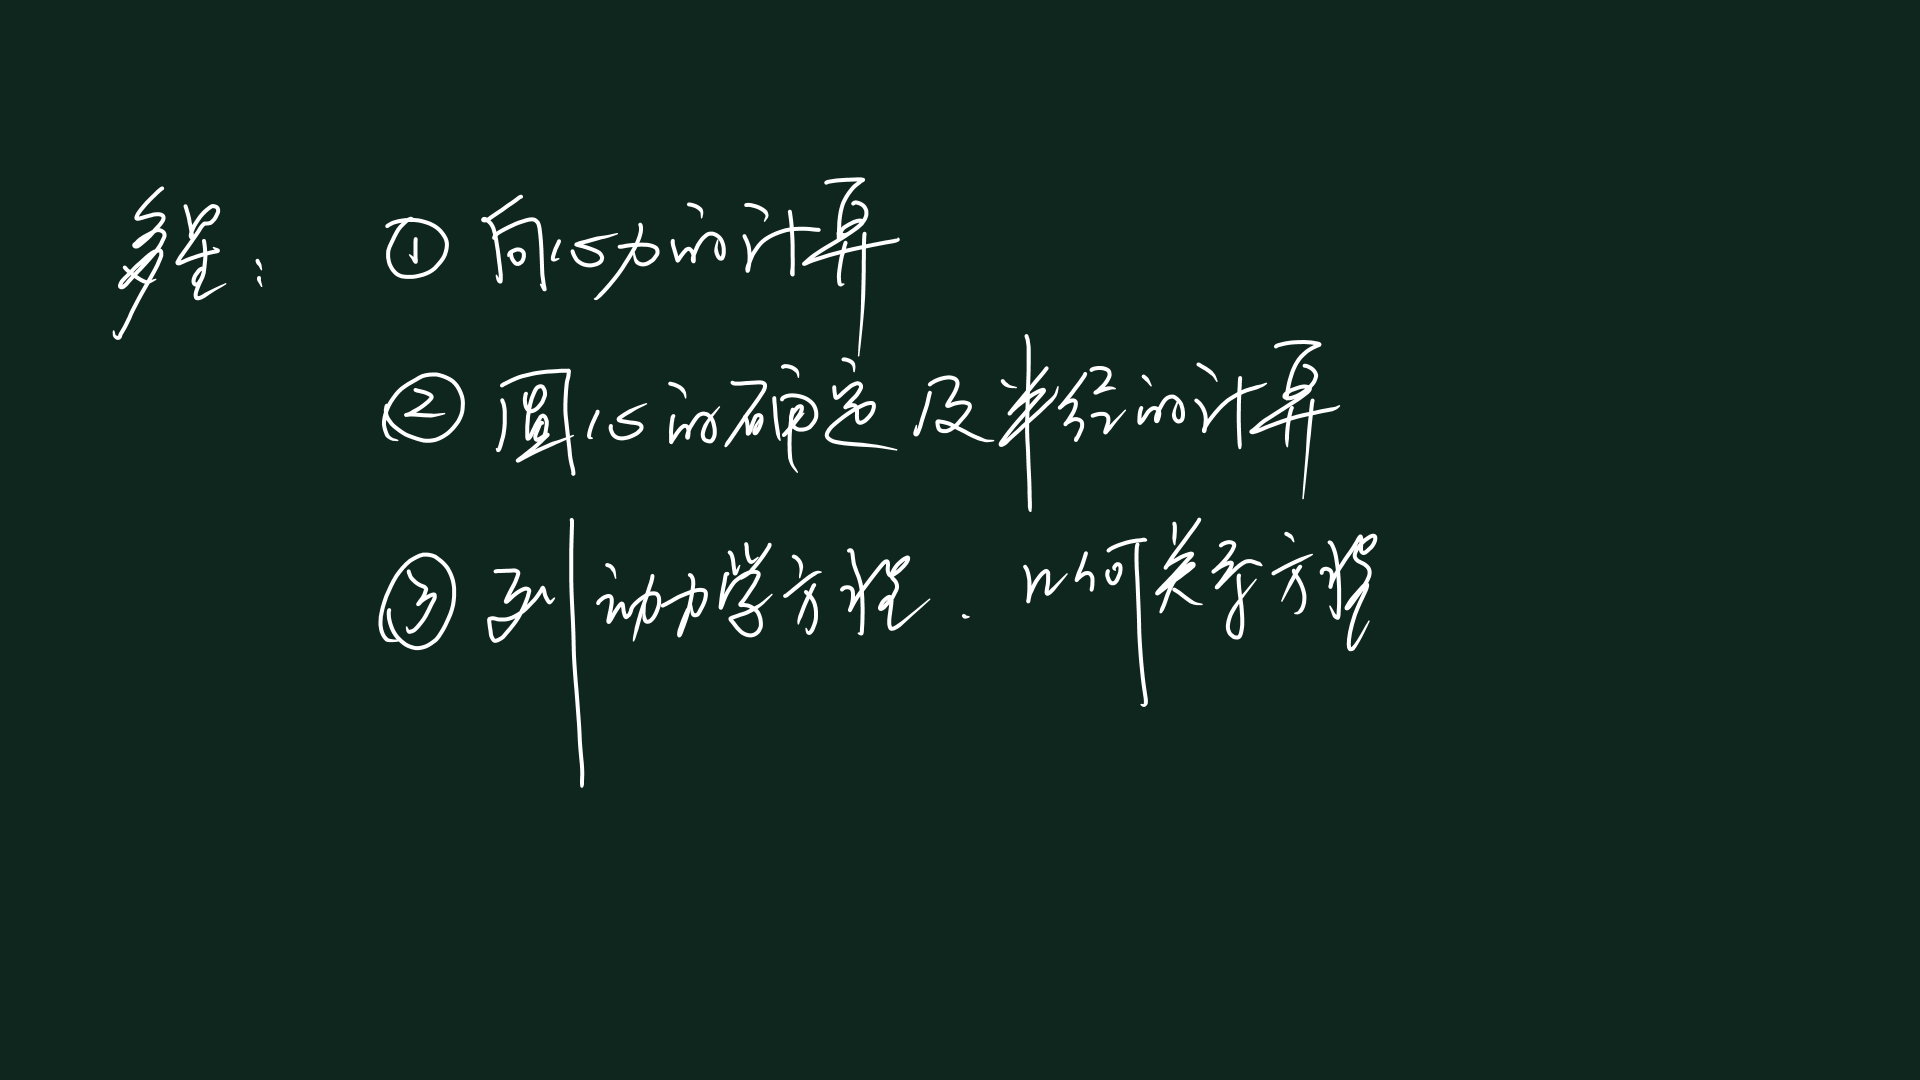 多星: ① 向心力的计算
② 圆心的确定及半径的计算
③ 列动力学方程. 几何关系方程